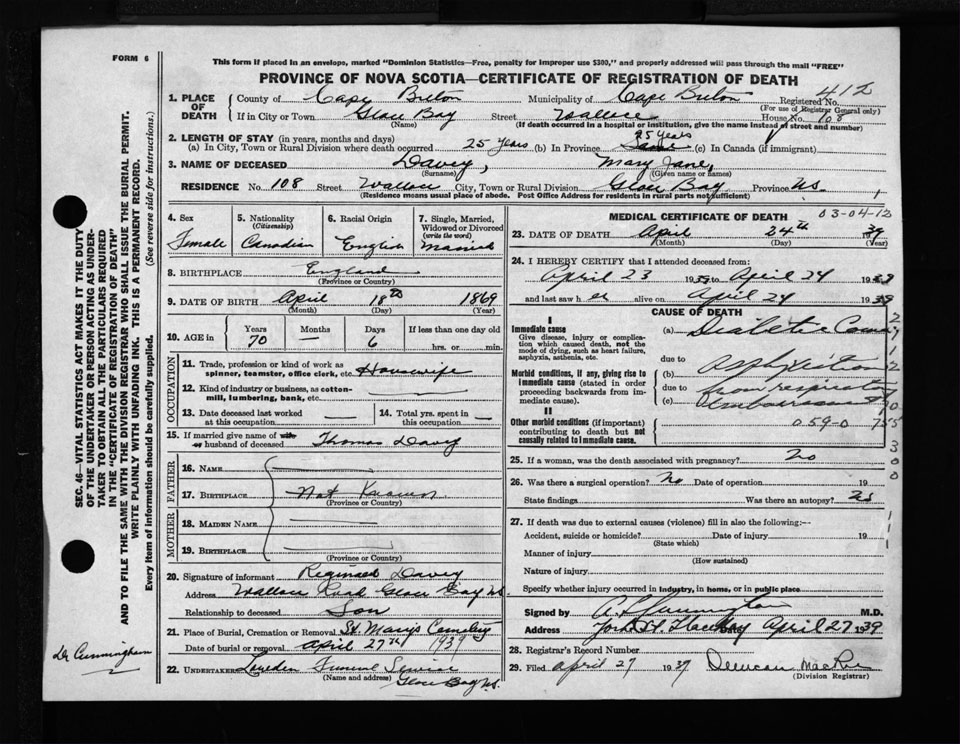 FORM 6
This form if placed in an envelope, marked "Dominion Statistics—Free, penalty for improper use $300," and properly addressed will pass through the mail "FREE"
PROVINCE OF NOVA SCOTIA—CERTIFICATE OF REGISTRATION OF DEATH
412
1. PLACE OF DEATH County of Cape Breton Municipality of Cape Breton Registered No.
(For use of Registrar General only)
If in City or Town Glace Bay Street Wallace House No. 108
(Name) (If death occurred in a hospital or institution, give the name instead of street and number)
2. LENGTH OF STAY (in years, months and days) 25 years
(a) In City, Town or Rural Division where death occurred 25 years (b) In Province Same (c) In Canada (if immigrant)
3. NAME OF DECEASED Davey, Mary Jane,
(Surname) (Given name or names)
RESIDENCE No. 108 Street Wallace City, Town or Rural Division Glace Bay Province NS
(Residence means usual place of abode. Post Office Address for residents in rural parts not sufficient)
4. Sex 5. Nationality 6. Racial Origin 7. Single, Married, Widowed or Divorced
(Citizenship) (write the word)
Female Canadian English Married
8. BIRTHPLACE England
(Province or Country)
9. DATE OF BIRTH April 18th 1869
(Month) (Day) (Year)
10. AGE in Years Months Days If less than one day old
70 — 6 hrs. or min.
OCCUPATION
11. Trade, profession or kind of work as spinner, teamster, office clerk, etc. Housewife
12. Kind of industry or business, as cotton-mill, lumbering, bank, etc.
13. Date deceased last worked at this occupation. — 14. Total yrs. spent in this occupation —
15. If married give name of wife or husband of deceased Thomas Davey
FATHER
16. NAME
17. BIRTHPLACE Not Known
(Province or Country)
MOTHER
18. MAIDEN NAME
19. BIRTHPLACE
(Province or Country)
20. Signature of informant Reginald Davey
Address Wallace Road Glace Bay NS
Relationship to deceased Son
21. Place of Burial, Cremation or Removal St. Mary's Cemetery
Date of burial or removal April 27th 1939
22. UNDERTAKER Funeral Service
(Name and address) Glace Bay NS.
MEDICAL CERTIFICATE OF DEATH 03-04-12
23. DATE OF DEATH April 24th 1939
(Month) (Day) (Year)
24. I HEREBY CERTIFY that I attended deceased from:
April 23 1939 to April 24 1939
and last saw h er alive on April 24 1939
CAUSE OF DEATH
I
Immediate cause (a) Diabetic Coma
Give disease, injury or complication which caused death, not the mode of dying, such as heart failure, asphyxia, asthenia, etc.
due to
Morbid conditions, if any, giving rise to immediate cause (stated in order proceeding backwards from immediate cause).
(b) asphyxiation
due to from respiratory
(c) embarrassment
II
Other morbid conditions (if important) contributing to death but not causally related to immediate cause.
059-0
25. If a woman, was the death associated with pregnancy? No
26. Was there a surgical operation? No Date of operation 19
State findings Was there an autopsy? No
27. If death was due to external causes (violence) fill in also the following:—
Accident, suicide or homicide? Date of injury 19
(State which)
Manner of injury
(How sustained)
Nature of injury
Specify whether injury occurred in industry, in home, or in public place
Signed by Cunningham M.D.
Address York St. Glace Bay Date April 27 1939
28. Registrar's Record Number
29. Filed April 27 1939 Duncan MacRae
(Division Registrar)
SEC. 46—VITAL STATISTICS ACT MAKES IT THE DUTY
OF THE UNDERTAKER OR PERSON ACTING AS UNDER-
TAKER TO OBTAIN ALL THE PARTICULARS REQUIRED
IN THE "CERTIFICATE OF REGISTRATION OF DEATH"
AND TO FILE THE SAME WITH THE DIVISION REGISTRAR WHO SHALL ISSUE THE BURIAL PERMIT.
WRITE PLAINLY WITH UNFADING INK. THIS IS A PERMANENT RECORD.
Every item of information should be carefully supplied. (See reverse side for instructions.)
Dr Cunningham